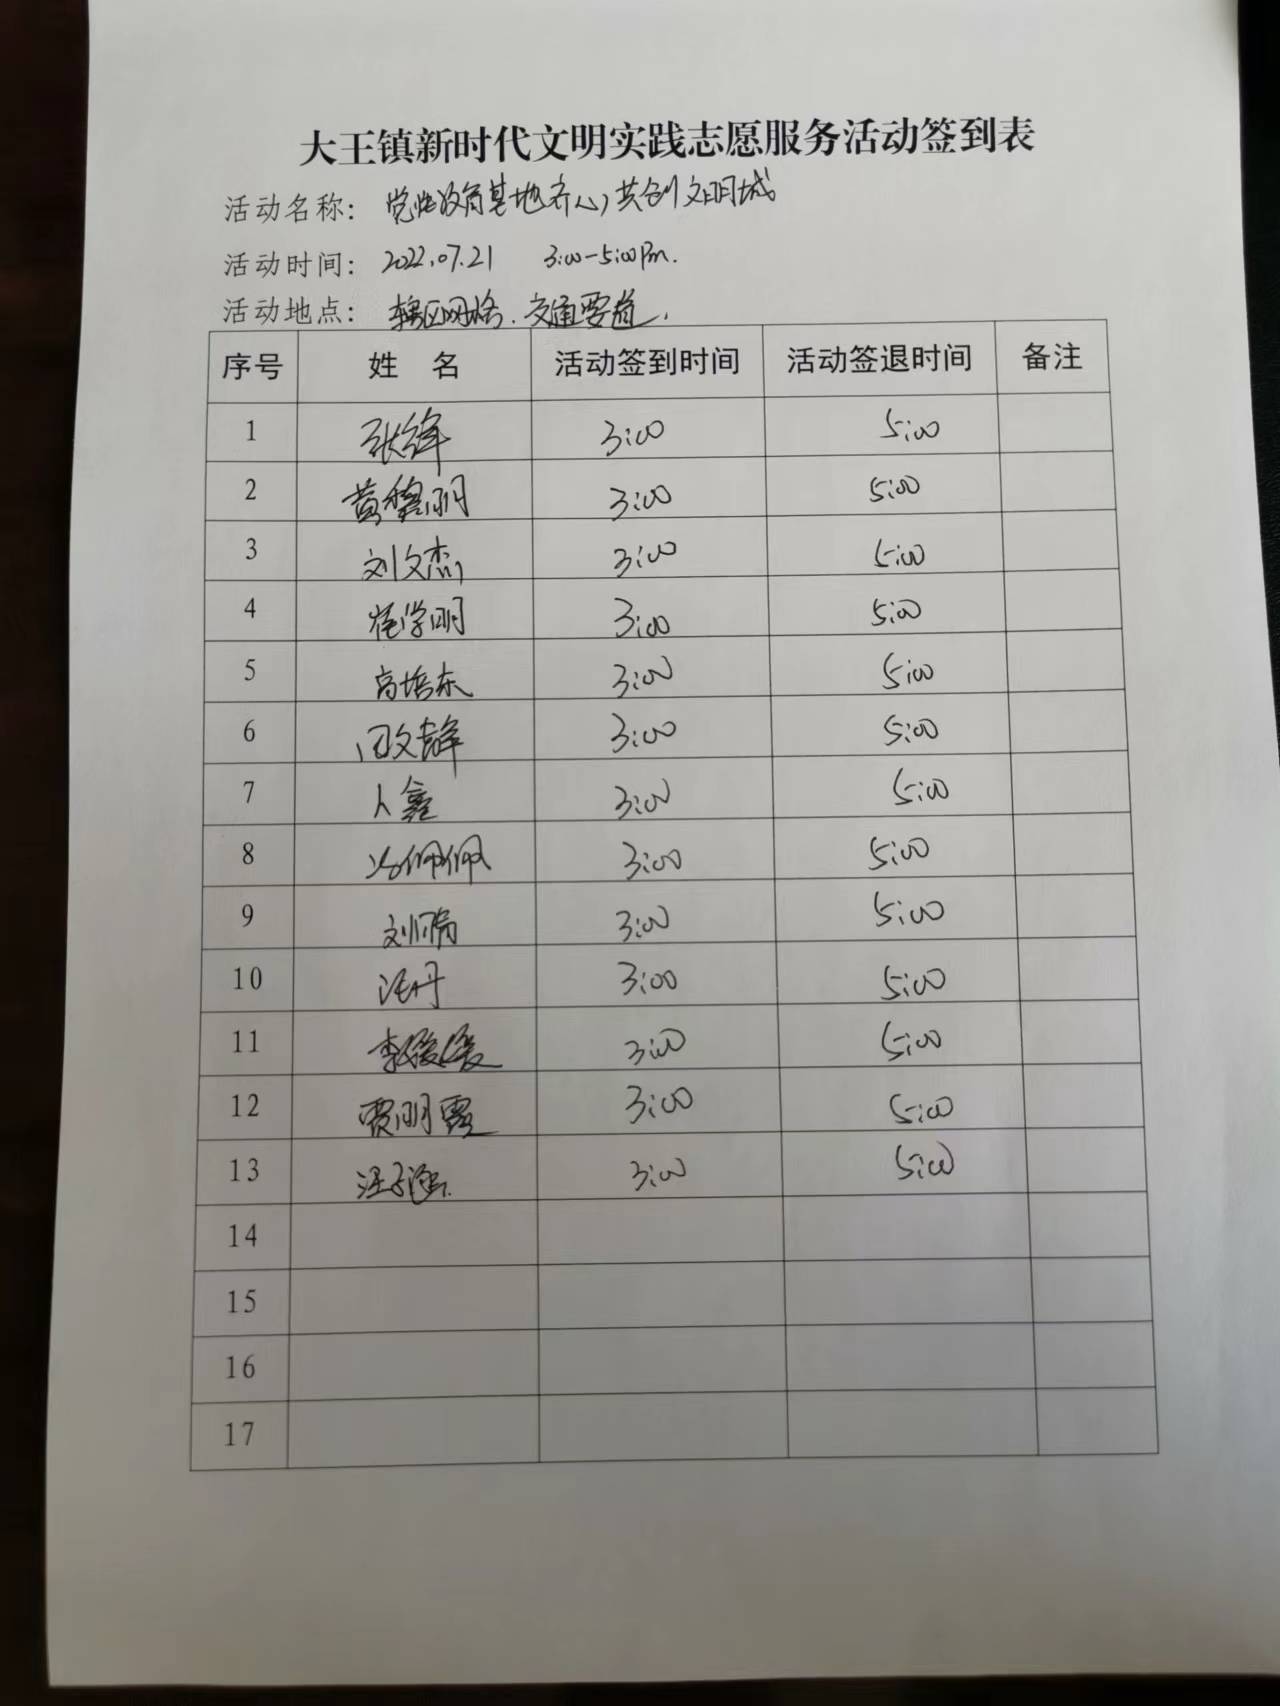 大王镇新时代文明实践志愿服务活动签到表
活动名称： 党性教育基地齐心，共创文明城
活动时间： 2022.07.21 3:00-5:00Pm.
活动地点： 辖区网格.交通要道.
序号 姓 名 活动签到时间 活动签退时间 备注
1 张锋 3:00 5:00
2 黄黎明 3:00 5:00
3 刘文杰 3:00 5:00
4 崔学明 3:00 5:00
5 高培东 3:00 5:00
6 3:00 5:00
7 人鑫 3:00 5:00
8 冯佩佩 3:00 5:00
9 3:00 5:00
10 汪丹 3:00 5:00
11 李媛媛 3:00 5:00
12 贾明霞 3:00 5:00
13 3:00 5:00
14
15
16
17